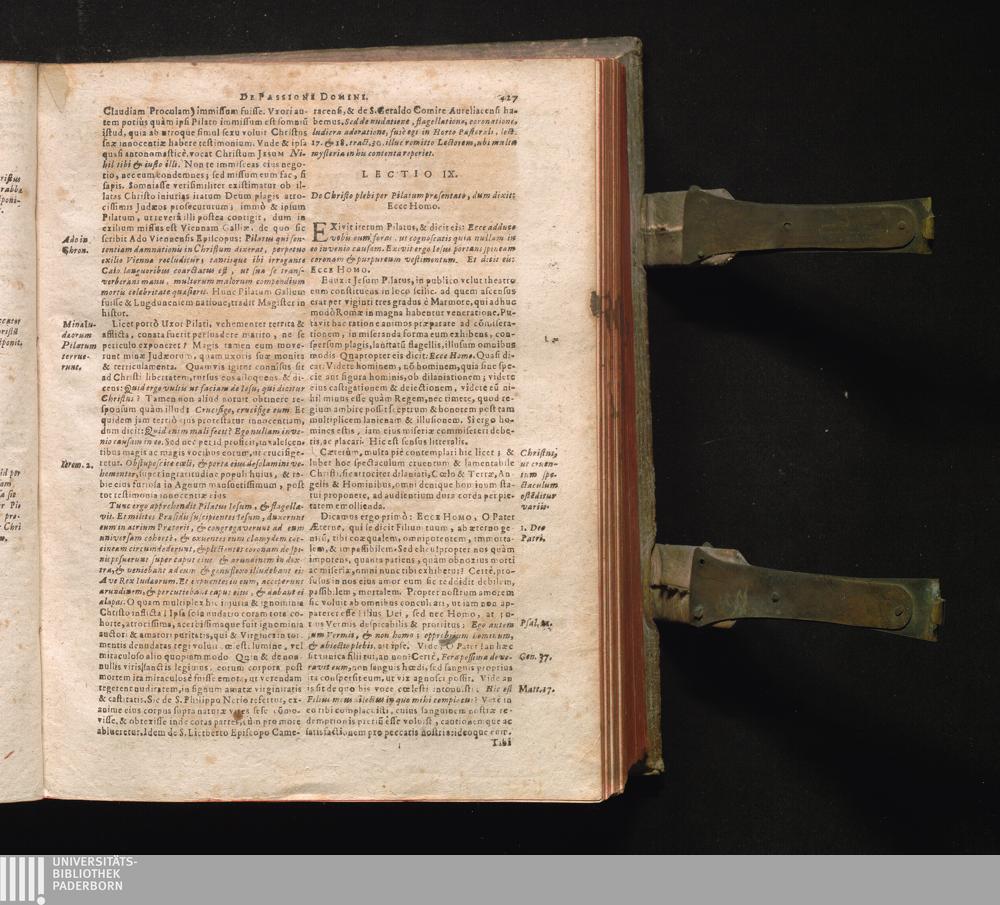 DE PASSIONE DOMINI. 427
Claudiam Proculam) immissum fuisse. Vxori au-
tem potiùs quàm ipsi Pilato immissum est somniũ
istud, quia ab utroque simul sexu voluit Christus
suæ innocentiæ habere testimonium. Vnde & ipsa
quasi antonomasticè, vocat Christum JESUM Ni-
hil tibi & iusto illi. Non te immisceas eius nego-
tio, nec eum condemnes; sed missum eum fac, si
sapis. Somniasse verisimiliter existimatur ob il-
latas Christo iniurias iratum Deum plagis atro-
cissimis Judæos prosecuturum; immò & ipsum
Pilatum, ut reverâ illi postea contigit, dum in
exilium missus est Viennam Galliæ. de quo sic
Ado in
Chron.
scribit Ado Viennensis Episcopus: Pilatus qui sen-
tentiam damnationis in Christum dixerat, perpetuo
exilio Viennæ recluditur, tantisque ibi irrogante
Caio languoribus coarctatus est, ut sua se trans-
verberans manu, multorum malorum compendium
mortis celebritate quæsierit. Hunc Pilatum Gallum
fuisse & Lugdunensem natione, tradit Magister in
histor.
Minæ Iu-
dæorum
Pilatum
terrue-
runt.
Licet porrò Uxor Pilati, vehementer territa &
afflicta, conata fuerit persuadere marito, ne se
periculo exponeret? Magis tamen eum move-
runt minæ Judæorum, quam uxoris suæ monita
& terriculamenta. Quamvis igitur connisus sit
ad Christi libertatem, rursus eos alloquens, & di-
cens: Quid ergo vultis ut faciam de Iesu, qui dicitur
Christus? Tamen non aliud potuit obtinere re-
sponsum quàm illud: Crucifige, crucifige eum. Et
quidem jam tertiò ejus protestatur innocentiam,
dum dicit: Quid enim mali fecit? Ego nullam inve-
nio causam in eo. Sed nec per id proficit, invalescen-
tibus magis ac magis vocibus eorum, ut crucifige-
Ierem. 2.
retur. Obstupescite cœli, & portæ eius desolamini ve-
hementer, super ingratitudine populi huius, & ra-
bie eius furiosa in Agnum mansuetissimum, post
tot testimonia innocentiæ eius
Tunc ergo apprehendit Pilatus Iesum, & flagella-
vit. Et milites Præsidis suscipientes Iesum, duxerunt
eum in atrium Prætorii, & congregaverunt ad eum
universam cohortẽ, & exuentes eum clamydem coc-
cineam circumdederunt, & plectentes coronam de spi-
nis posuerunt super caput eius, & arundinem in dex-
tra, & veniebant ad eum & genuflexo illudebant ei:
Ave Rex Iudæorum. Et expuentes in eum, acceperunt
arundinem, & percutiebant caput eius, & dabant ei
alapas. O quam multiplex hic injuria & ignominia
Christo inflicta! Ipsa sola nudatio coram tota co-
horte, atrocissima, acerbissimaque fuit ignominia
auctori & amatori puritatis, qui & Virgines in tor-
mentis denudatas tegi voluit, cœlesti lumine, vel
miraculoso alio quopiam modo. Quin & de non-
nullis viris sanctis legimus, eorum corpora post
mortem ita miraculosè fuisse emota, ut verendam
tegerent nuditatem, in signum amatæ virginitatis
& castitatis. Sic de S. Philippo Nerio refertur, ex-
anime eius corpus supra naturæ vires sese cõmo-
visse, & obtexisse inde eas partes, cùm pro more
ablueretur. Idem de S. Lietberto Episcopo Came-
racensi, & de S. Geraldo Comite Aureliacensi ha-
bemus. Sed de nudatione, flagellatione, coronatione,
ludicra adoratione, fusè egi in Horto Pastorali, lect.
17. & 18. tract. 30. illuc remitto Lectorem, ubi multa
mysteria in hu contenta reperiet.
LECTIO IX.
De Christo plebi per Pilatum præsentato, dum dixit:
Ecce Homo.
EXivit iterum Pilatus, & dicit eis: Ecce adduco
vobis eum foras, ut cognoscatis quia nullam in
eo invenio causam. Exivit ergo Iesus portans spineam
coronam & purpureum vestimentum. Et dicit eis:
ECCE HOMO.
Eduxit Jesum Pilatus, in publico velut theatro
eum constituens in loco scilic. ad quem ascensus
erat per viginti tres gradus è Marmore, qui adhuc
modò Romæ in magna habentur veneratione. Pu-
tavit hac ratione animos præparate ad cõmisera-
tionem, in miseranda forma eum exhibens, con-
spersum plagis, laniatũ flagellis, illusum omnibus
modis. Quapropter eis dicit: Ecce Homo. Quasi di-
cat: Videte hominem, nõ hominem, quia sine spe-
cie aut figura hominis, ob dilaniationem; videte
eius castigationem & deiectionem, videte eũ ni-
hil minus esse quàm Regem, nec timete, quod re-
gium ambire possit sceptrum & honorem post tam
multiplicem lanienam & illusionem. Si ergo ho-
mines estis, iam eius miseriæ commisereri debe-
tis, ac placari. Hic est sensus litteralis.
Christus,
ut cruen-
tum spe-
ctaculum
ostẽditur
variis.
Cæterùm, multa piè contemplari hîc licet; &
lubet hoc spectaculum cruentum & lamentabile
Christi, sic atrociter dilaniati, Cœlo & Terræ, An-
gelis & Hominibus, omni denique hominum sta-
tui proponere, ad audientium dura corda per pie-
tatem emollienda.
1. Deo
Patri.
Dicamus ergo primò: ECCE HOMO, O Pater
Æterne, qui se dicit Filium tuum, ab æterno ge-
nitũ, tibi coæqualem, omnipotentem, immorta-
lem, & impassibilem. Sed eheu! propter nos quàm
impotens, quanta patiens, quàm obnoxius morti
ac miseriæ, omni nunc tibi exhibetur! Certè, pro-
fusus in nos eius amor eum sic reddidit debilem,
passibilem, mortalem. Propter nostrum amorem
sic voluit ab omnibus conculcari, ut iam non ap-
pareret esse Filius Dei, sed nec Homo, at po-
Psal. 21.
tius Vermis despicabilis & protritus: Ego autem
sum Vermis, & non homo; opprobrium hominum,
& abiectio plebis, ait ipse. Vide, O Pater! an hæc
Gen. 37.
sit tunica filii tui, an non? Certè, Fera pessima devo-
ravit eum, non sanguis hœdi, sed sanguis proprius
ita conspersit eum, ut vix agnosci possit. Vide an
Matt. 17.
is sit de quo bis voce cœlesti intonuisti: Hic est
Filius meus dilectus in quo mihi complacui? Verè in
eo tibi complacuisti, cuius sanguinem nostræ re-
demptionis pretiũ esse voluisti, cautionemque ac
satisfactionem pro peccatis nostris: ideoque eum
Tibi
UNIVERSITÄTS-
BIBLIOTHEK
PADERBORN